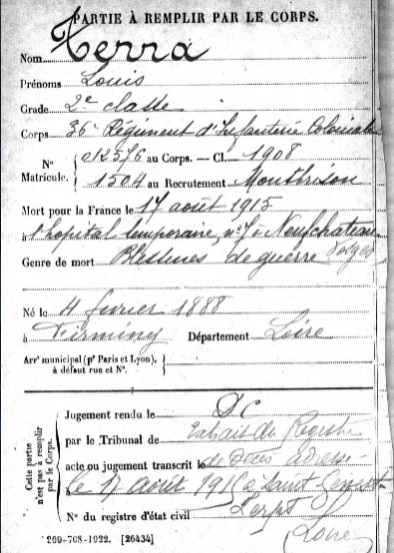 PARTIE À REMPLIR PAR LE CORPS.
Nom Terra
Prénoms Louis
Grade 2e classe
Corps 36e Régiment d'Infanterie Coloniale
N° Matricule. 012576 au Corps. — Cl. 1908
1504 au Recrutement Montbrison
Mort pour la France le 17 août 1915
à l'hôpital temporaire n° 7 à Neufchateau Vosges
Genre de mort Blessures de guerre
Né le 4 fevrier 1888
à Firminy Département Loire
Arrt municipal (pr Paris et Lyon), à défaut rue et N°.
Cette partie n'est pas à remplir par le Corps.
Jugement rendu le
par le Tribunal de Extrait du Registre
acte ou jugement transcrit le de Décès adressé
le 17 août 1915 à Saint Genest
N° du registre d'état civil Lerpt
Loire
260-708-1922. [26434]